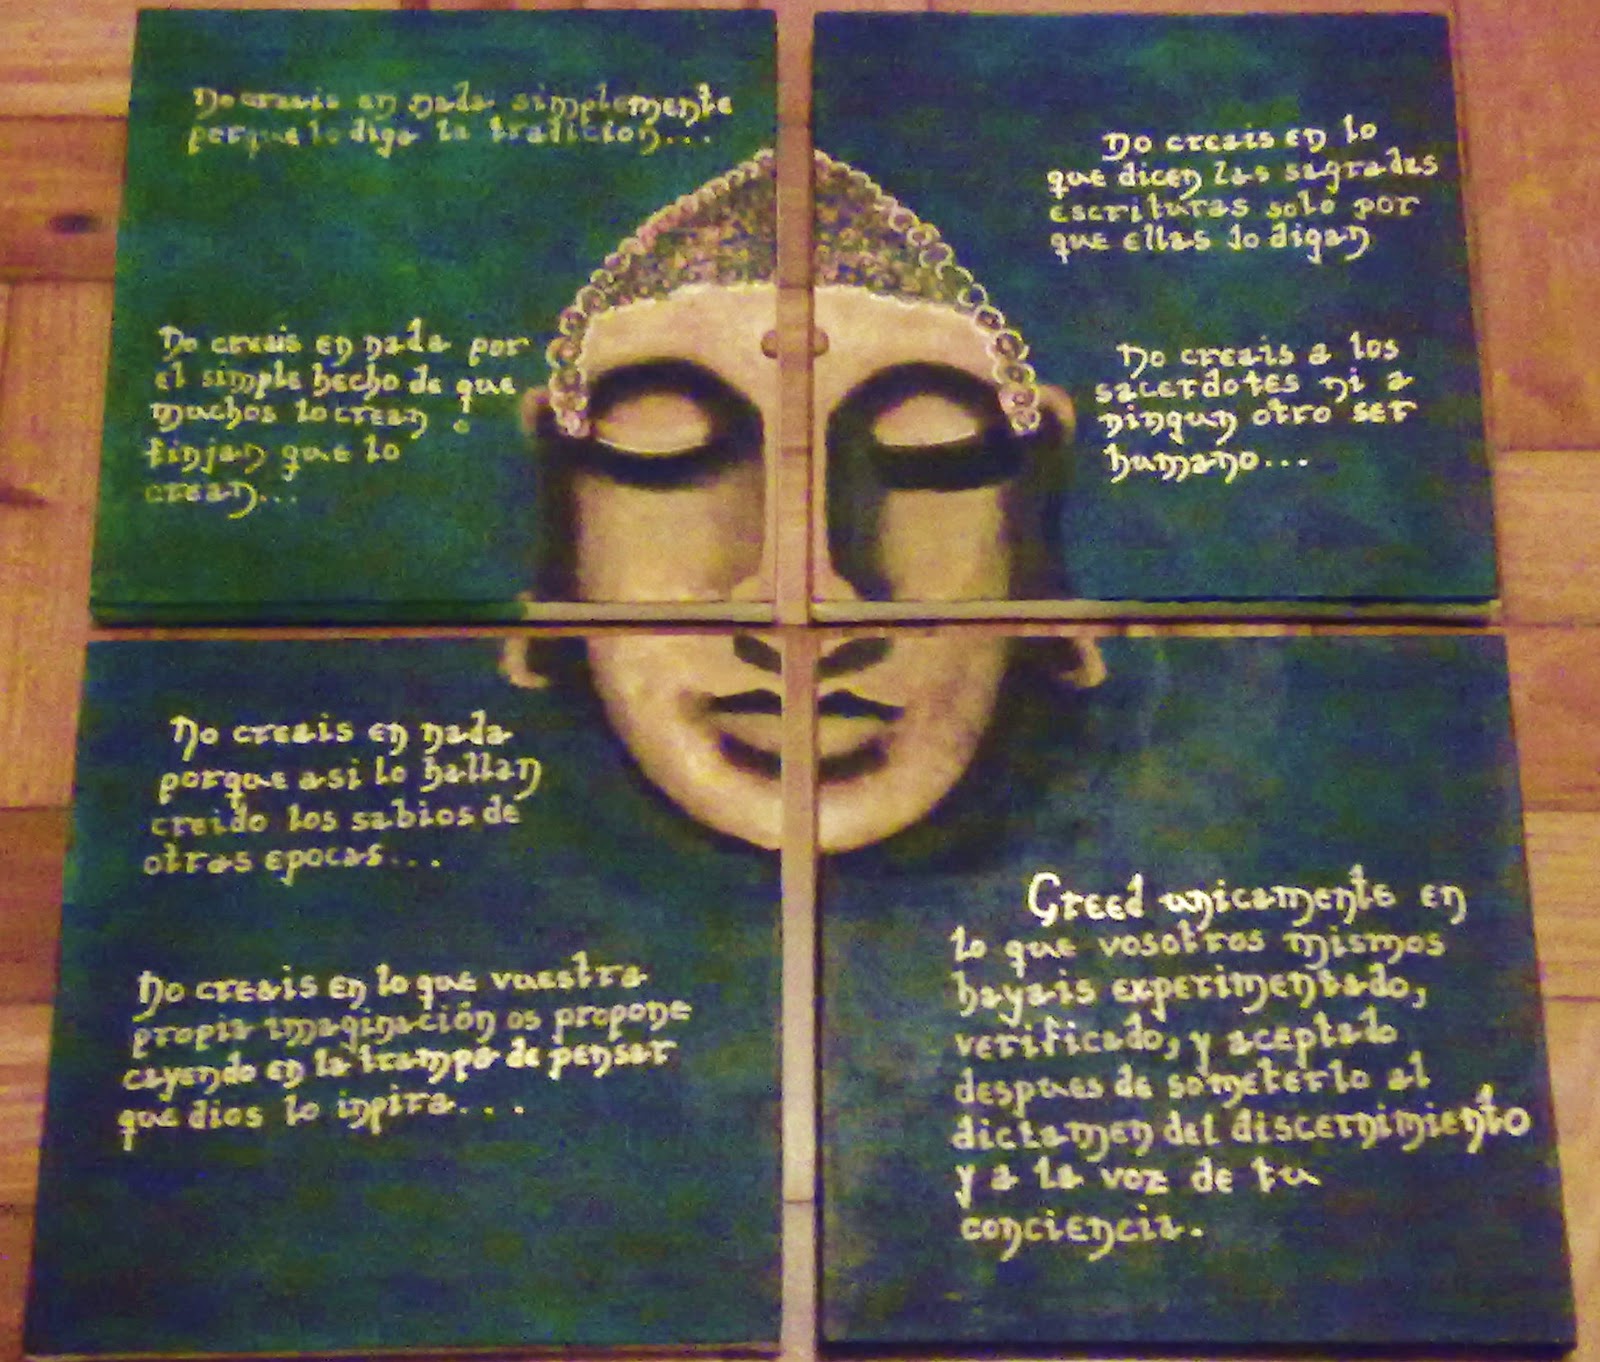 No creais en nada simplemente
porque lo diga la tradicion...
No creais en nada por
el simple hecho de que
muchos lo crean o
finjan que lo
crean...
No creais en lo
que dicen las sagradas
escrituras solo por
que ellas lo digan
No creais a los
sacerdotes ni a
ningun otro ser
humano...
No creais en nada
porque asi lo hallan
creido los sabios de
otras epocas...
No creais en lo que vuestra
propia imaginación os propone
cayendo en la trampa de pensar
que dios lo inpira...
Creed unicamente en
lo que vosotros mismos
hayais experimentado,
verificado, y aceptado
despues de someterlo al
dictamen del discernimiento
y a la voz de tu
conciencia.